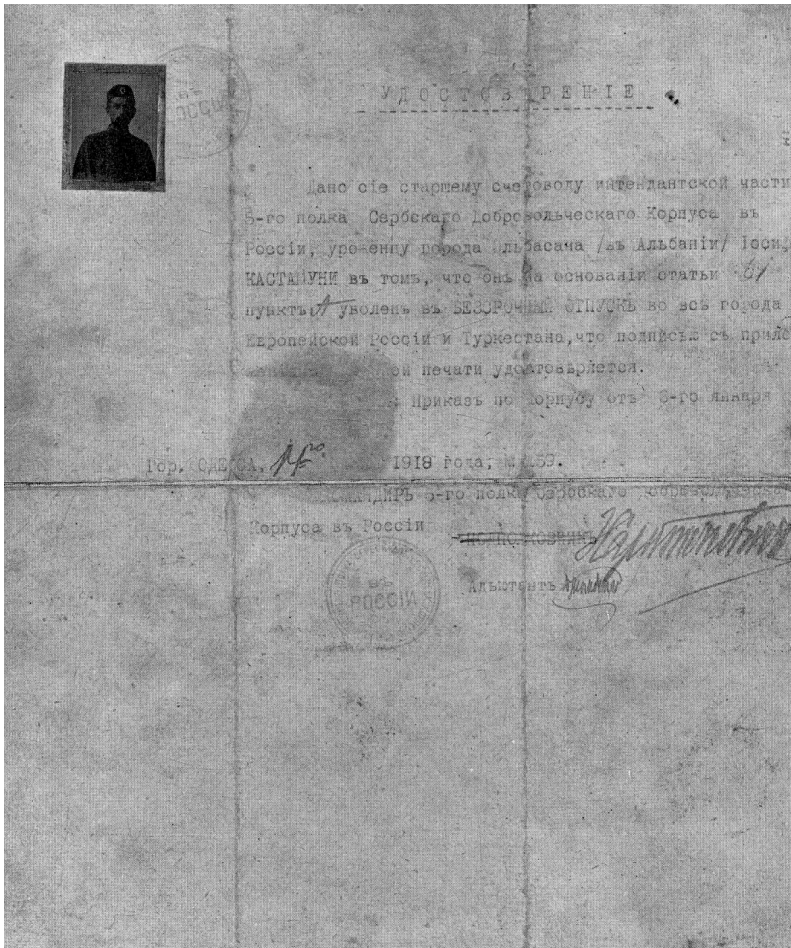 въ
РОССІИ
УДОСТОВѢРЕНІЕ
Дано сіе старшему счетоводу интендантской части
5-го полка Сербскаго Добровольческаго Корпуса въ
Россіи, уроженцу города Эльбасача /въ Альбаніи/ Іоси
КАСТАМУНИ въ томъ, что онъ на основаніи статьи
пунктъ А уволенъ въ БЕЗСРОЧНЫЙ ОТПУСКЪ во всѣ города
Европейской Россіи и Туркестана, что подписью съ прило
печати удостовѣряется.
Приказъ по Корпусу отъ января
Гор. ОДЕССА, 1918 года, 159.
КОМАНДИРЪ 5-го полка Сербскаго Добровольческаго
Корпуса въ Россіи
ПОЛКОВНИКЪ
Адьютантъ
въ
РОССІИ